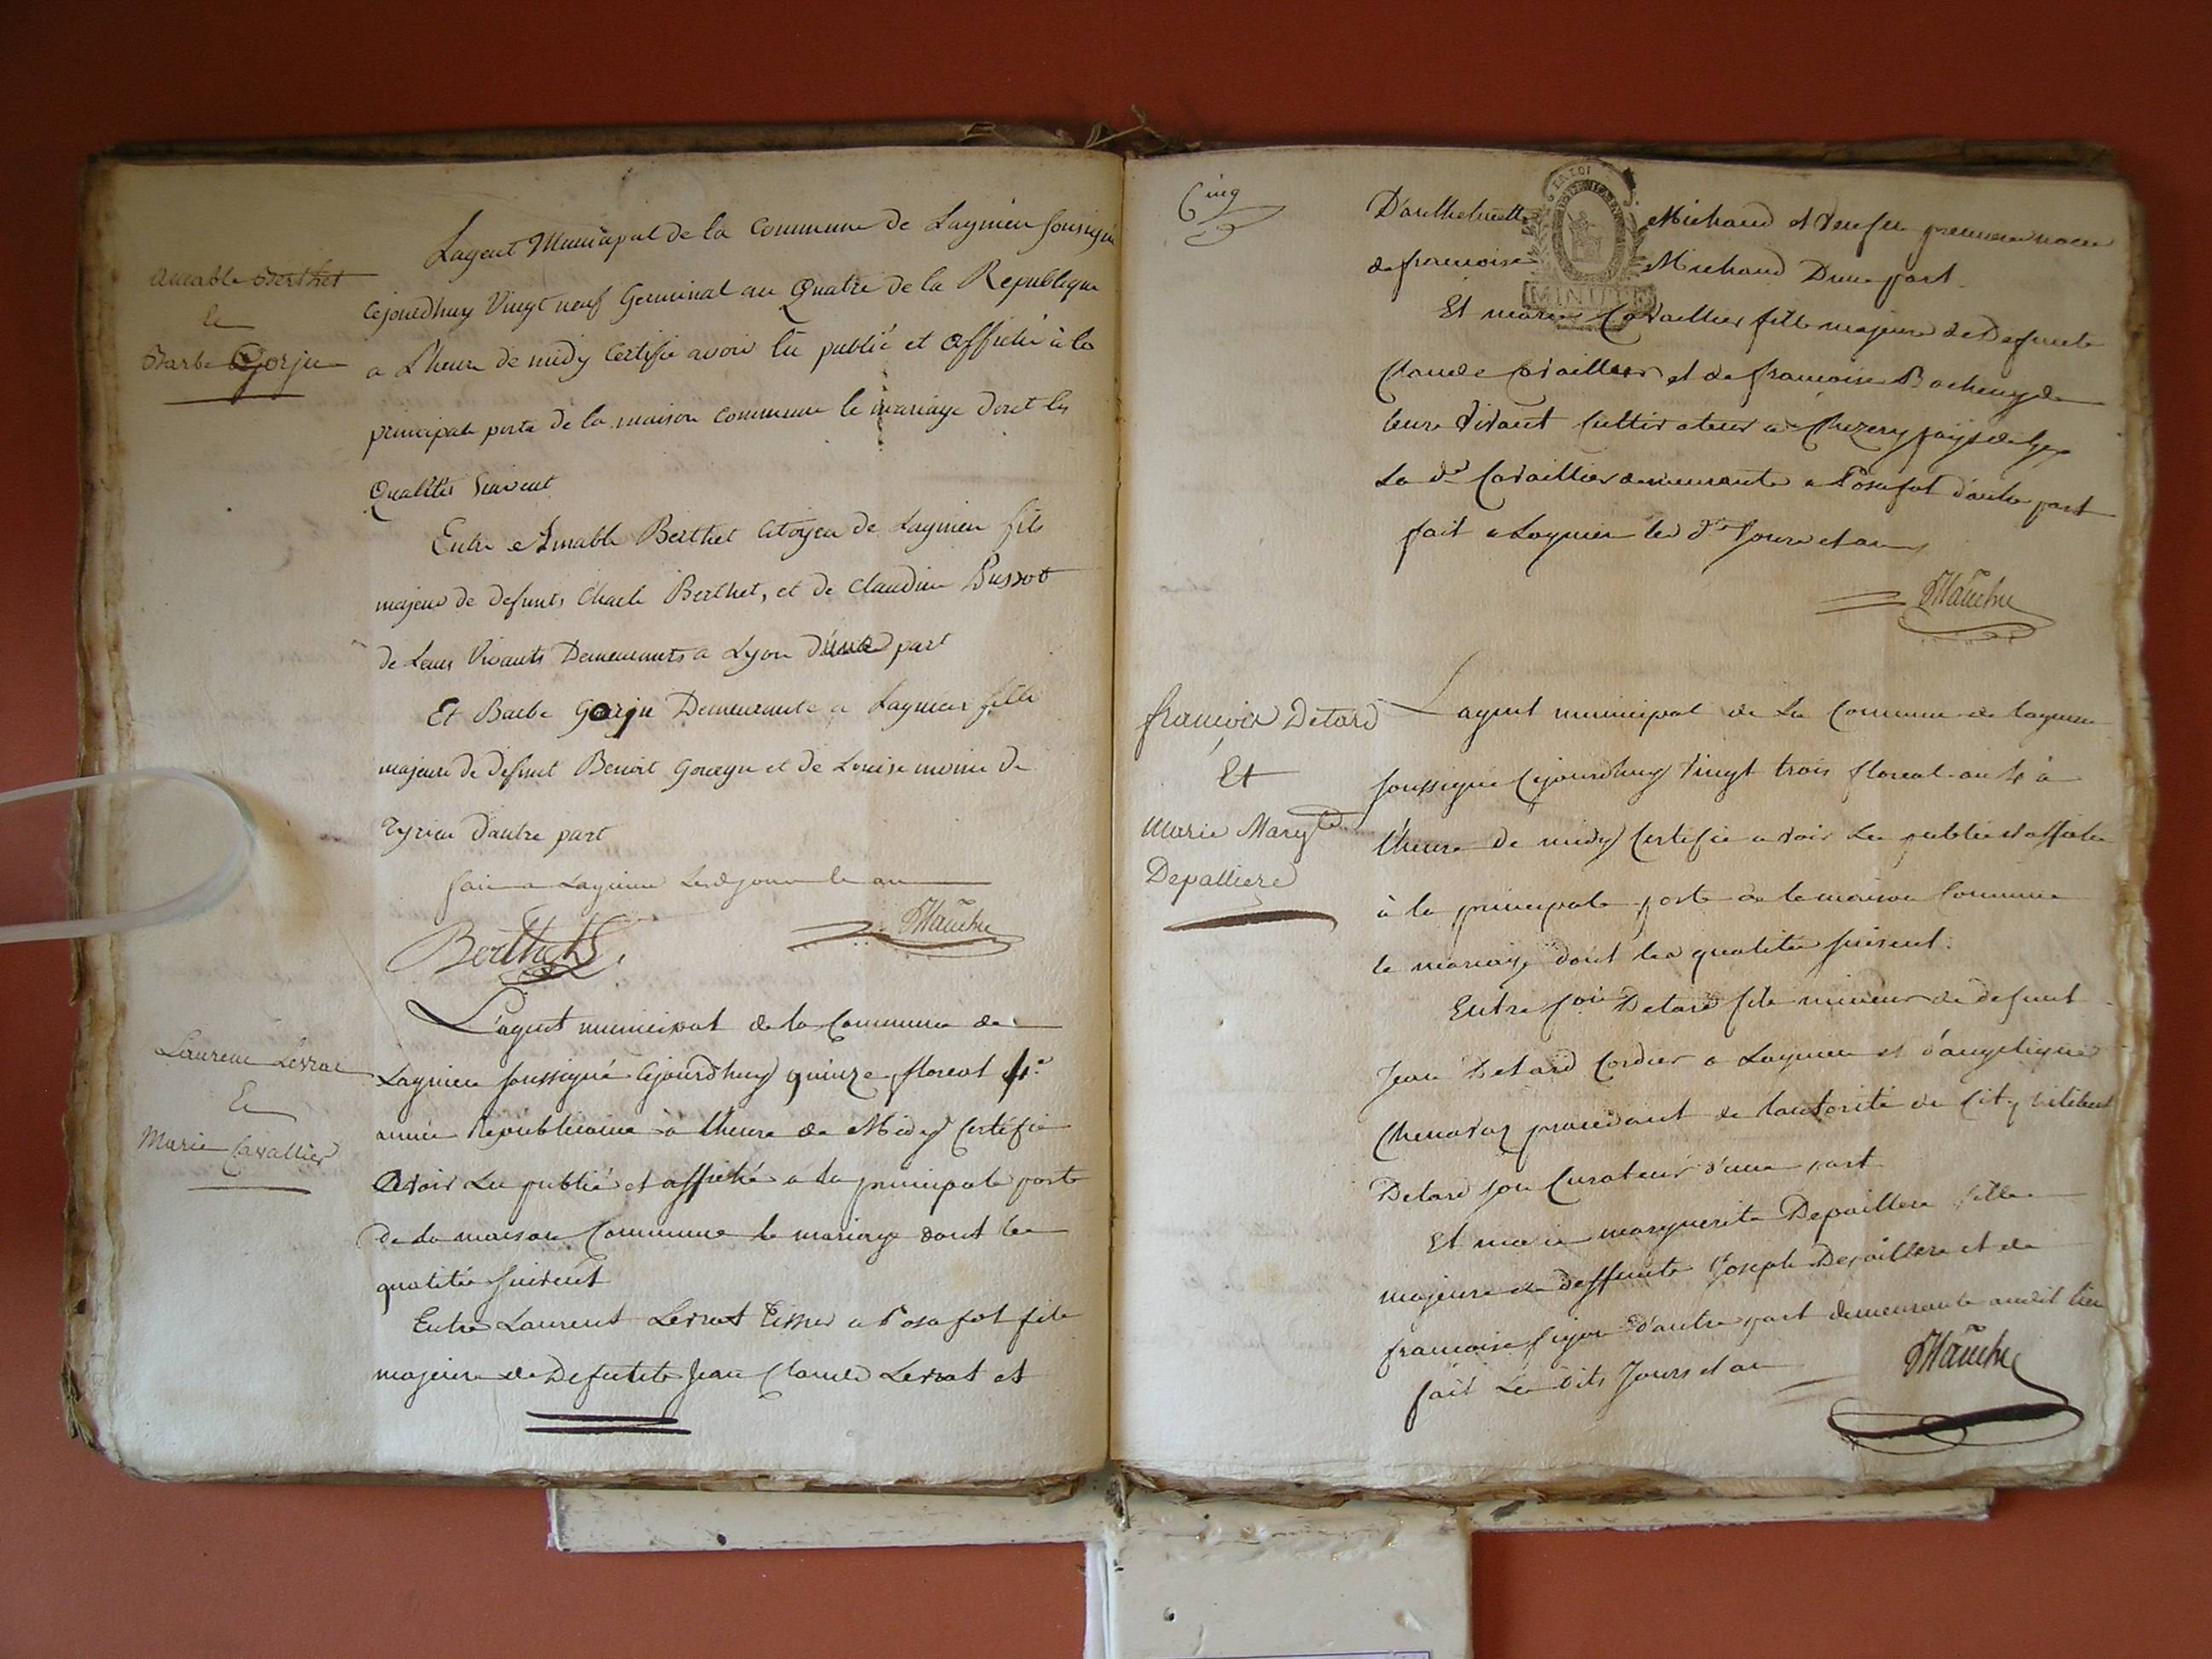 Amable Berthet
Et
Barbe Gorju
Lagent Municipal de la Commune de Lagnieu soussigné
Cejourdhuy Vingt neuf Germinal an Quatre de la Republique
a Lheure de midy Certifie avoir lu publié et affiché à la
principale porte de la maison commune le mariage dont les
Qualités suivent
Entre Amable Berthet Citoyen de Lagnieu fils
majeur de defunts Charle Berthet, et de Claudine Bussot
de Leurs Vivants Demeurants a Lyon d'une part
Et Barbe Gorju Demeurante a Lagnieu fille
majeure de defunt Benoit et de Louise moine de
d'autre part
fait a Lagnieu Lesd jour et an
Berthet
Laurent Levrat
Et
Marie Cavallier
L'agent municipal de la Commune de
Lagnieu soussigné Cejourdhuy quinze floreal 4e
année Republicaine à lheure de Midy Certifie
avoir Lu publié et affiché a la principale porte
de la maison Commune le mariage dont les
qualités suivent
Entre Laurent Levrat Tissier a Posafol fils
majeur de Defunts Jean Claude Levrat et
Cinq
LA LOI
MINUTE
Michaud et veuf en premiere noces
de francoise Michaud D'une part
Et marie Cavaillier fille majeure de Defunts
Claude Cavaillier et de francoise de
leurs Vivant Cultivateur a Chezery pays de Gex
La de Cavaillier demeurante a Posafol d'autre part
fait a Lagnieu les dts Jours et an
francois Detard
Et
Marie Margte
Depalliere
Lagent municipal de La Commune de lagnieu
soussigné Cejourdhuy Vingt trois floreal an 4 à
lheure de midy Certifie avoir Lu publié et affiché
à la principale porte de la maison Commune
le mariage dont les qualités suivent.
Entre fois Detard fils mineur de defunt
Jean Detard Cordier a Lagnieu et d'angelique
Chenavaz procedant de lautorité du Cit.
Detard son Curateur d'une part
Et marie marguerite Depaillere fille
majeure de deffunts Joseph Depaillere et de
francoise d'autre part demeurante audit lieu
fait Les Dits Jours et an